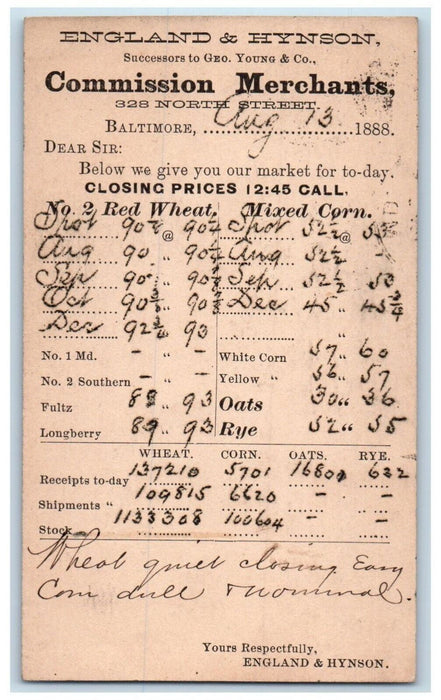 ENGLAND & HYNSON,
Successors to GEO. YOUNG & Co.,
Commission Merchants,
328 NORTH STREET.
BALTIMORE, Aug 13 1888.
DEAR SIR:
Below we give you our market for to-day.
CLOSING PRICES 12:45 CALL,
No. 2 Red Wheat. Mixed Corn.
Spot 90 @ 90 Spot 52½ @ 53
Aug 90 " 90½ Aug 52½ -
Sep 90 " 90½ Sep 52½ 53
Oct 90¾ " 90 Dec 45 " 45¾
Dec 92¾ " 93
No. 1 Md. - " - White Corn 57 " 60
No. 2 Southern - " - Yellow " 56 " 57
Fultz 83 " 93 Oats 30 " 36
Longberry 89 " 93 Rye 52 " 55
WHEAT. CORN. OATS. RYE.
Receipts to-day 137210 5701 632
Shipments " 109815 6620 - -
Stock 1133308 100604 - -
Wheat quiet closing Easy
Corn dull & nominal.
Yours Respectfully,
ENGLAND & HYNSON.